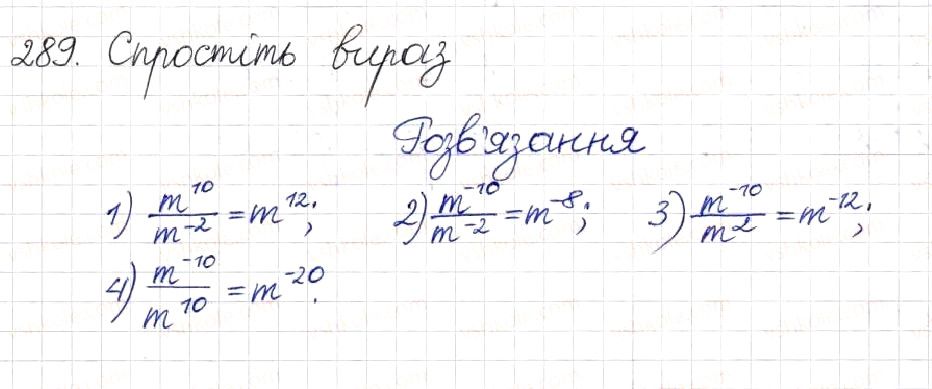 289. Спростіть вираз
Розв'язання
1) m^10/m^-2 = m^12; 2) m^-10/m^-2 = m^-8; 3) m^-10/m^2 = m^-12;
4) m^-10/m^10 = m^-20.